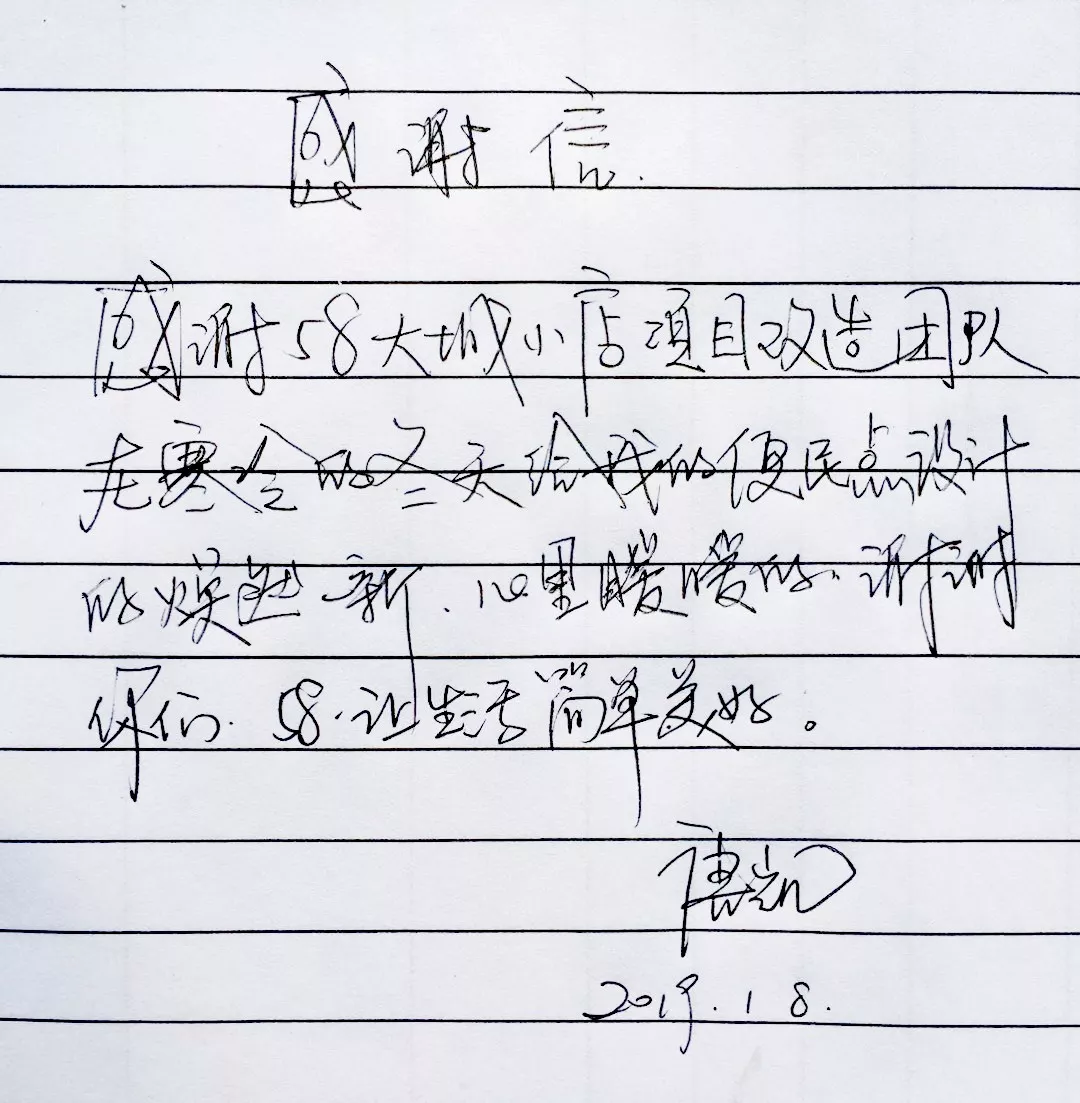 感谢信.
感谢58大城小店项目改造团队
在寒冷的冬天给我的便民点设计
的焕然一新.心里暖暖的.谢谢
你们.58.让生活简单美好。
唐凯
2019.1 8.